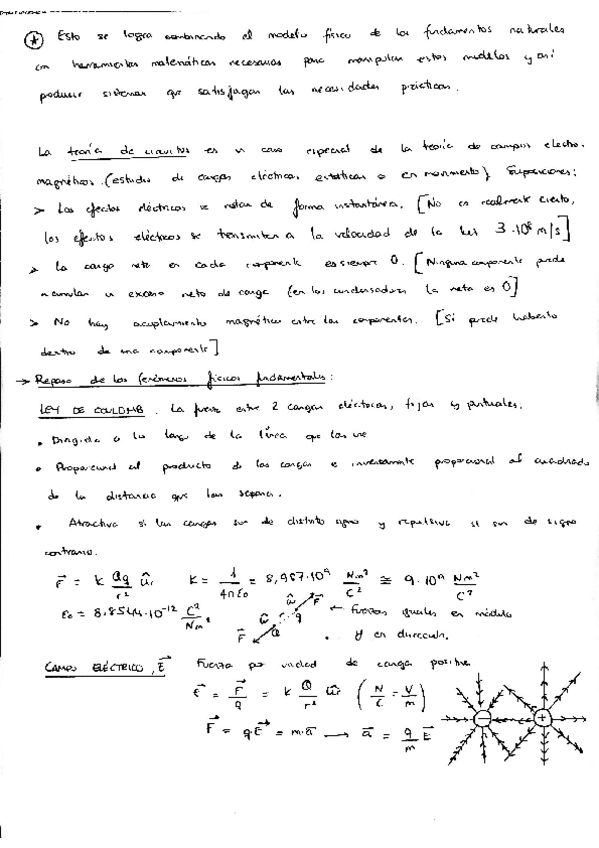 (*) Esto se logra combinando el modelo físico de los fundamentos naturales
con herramientas matemáticas necesarias para manipular estos modelos y así
producir sistemas que satisfagan las necesidades prácticas.
La teoría de circuitos es un caso especial de la teoría de campos electro-
magnéticos. (estudio de cargas eléctricas estáticas o en movimiento) Suposiciones:
> Los efectos eléctricos se notan de forma instantánea. [No es realmente cierto,
los efectos eléctricos se transmiten a la velocidad de la luz 3·10⁸ m/s]
> La carga neta en cada componente es siempre 0. [Ninguna componente puede
acumular un exceso neto de carga (en los condensadores la neta es 0]
> No hay acoplamiento magnético entre las componentes. [Sí puede haberlo
dentro de una componente]
→ Repaso de los fenómenos físicos fundamentales:
LEY DE COULOMB. La fuerza entre 2 cargas eléctricas, fijas y puntuales:
• Dirigida a lo largo de la línea que las une
• Proporcional al producto de las cargas e inversamente proporcional al cuadrado
de la distancia que las separa.
• Atractiva si las cargas son de distinto signo y repulsiva si son de signo
contrario.
F⃗ = k Qq/r² ûr K = 1/4πε₀ = 8,987·10⁹ N·m²/C² ≅ 9·10⁹ Nm²/C²
ε₀ = 8.8544·10⁻¹² C²/Nm² û F⃗ q Q û F⃗ ← Fuerzas iguales en módulo
y en dirección.
CAMPO ELÉCTRICO, E⃗ Fuerza por unidad de carga positiva
E⃗ = F⃗/q = k Q/r² ûr (N/C = V/m)
F⃗ = qE⃗ = m·a⃗ → a⃗ = q/m E⃗ − +